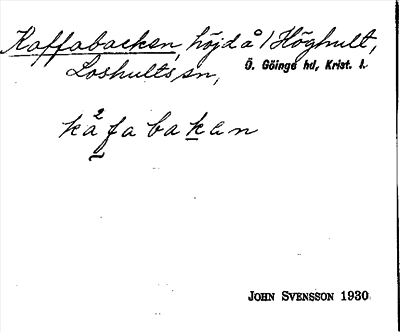 Kaffabacken, höjd å /Höghult,
Loshults sn, Ö. Göinge hd, Krist. l.
kåfabakan
JOHN SVENSSON 1930